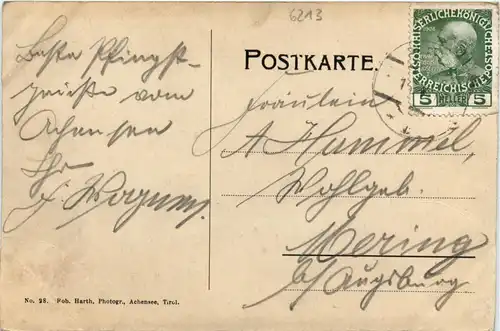 6213
POSTKARTE.
Beste Pfingst-
grüße vom
Achensee
Ihr
J. Wagner.
Fräulein
A Hummel,
Wohlgeb.
Mering
b/Augsburg
KAISERLICHE KÖNIGLICHE
ÖSTERREICHISCHE POST
5 HELLER 5
No. 28. Fob. Harth, Photogr., Achensee, Tirol.